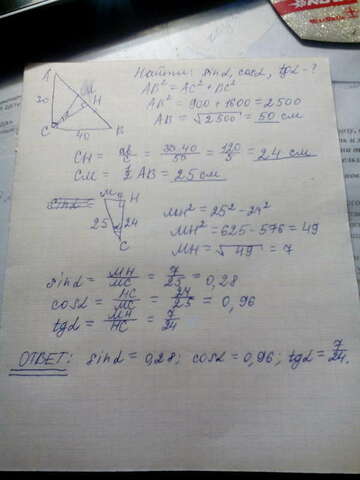 Найти: sinα, cosα, tgα - ?
A
M
30
H
C
40
B
AB² = AC² + BC²
AB² = 900 + 1600 = 2500
AB = √2500 = 50 см
CH = ab/c = 30·40/50 = 120/5 = 24 см
CM = 1/2 AB = 25 см
sinα
M
H
25
24
C
MH² = 25² - 24²
MH² = 625 - 576 = 49
MH = √49 = 7
sinα = MH/MC = 7/25 = 0,28
cosα = HC/MC = 24/25 = 0,96
tgα = MH/HC = 7/24
ОТВЕТ: sinα = 0,28; cosα = 0,96; tgα = 7/24.